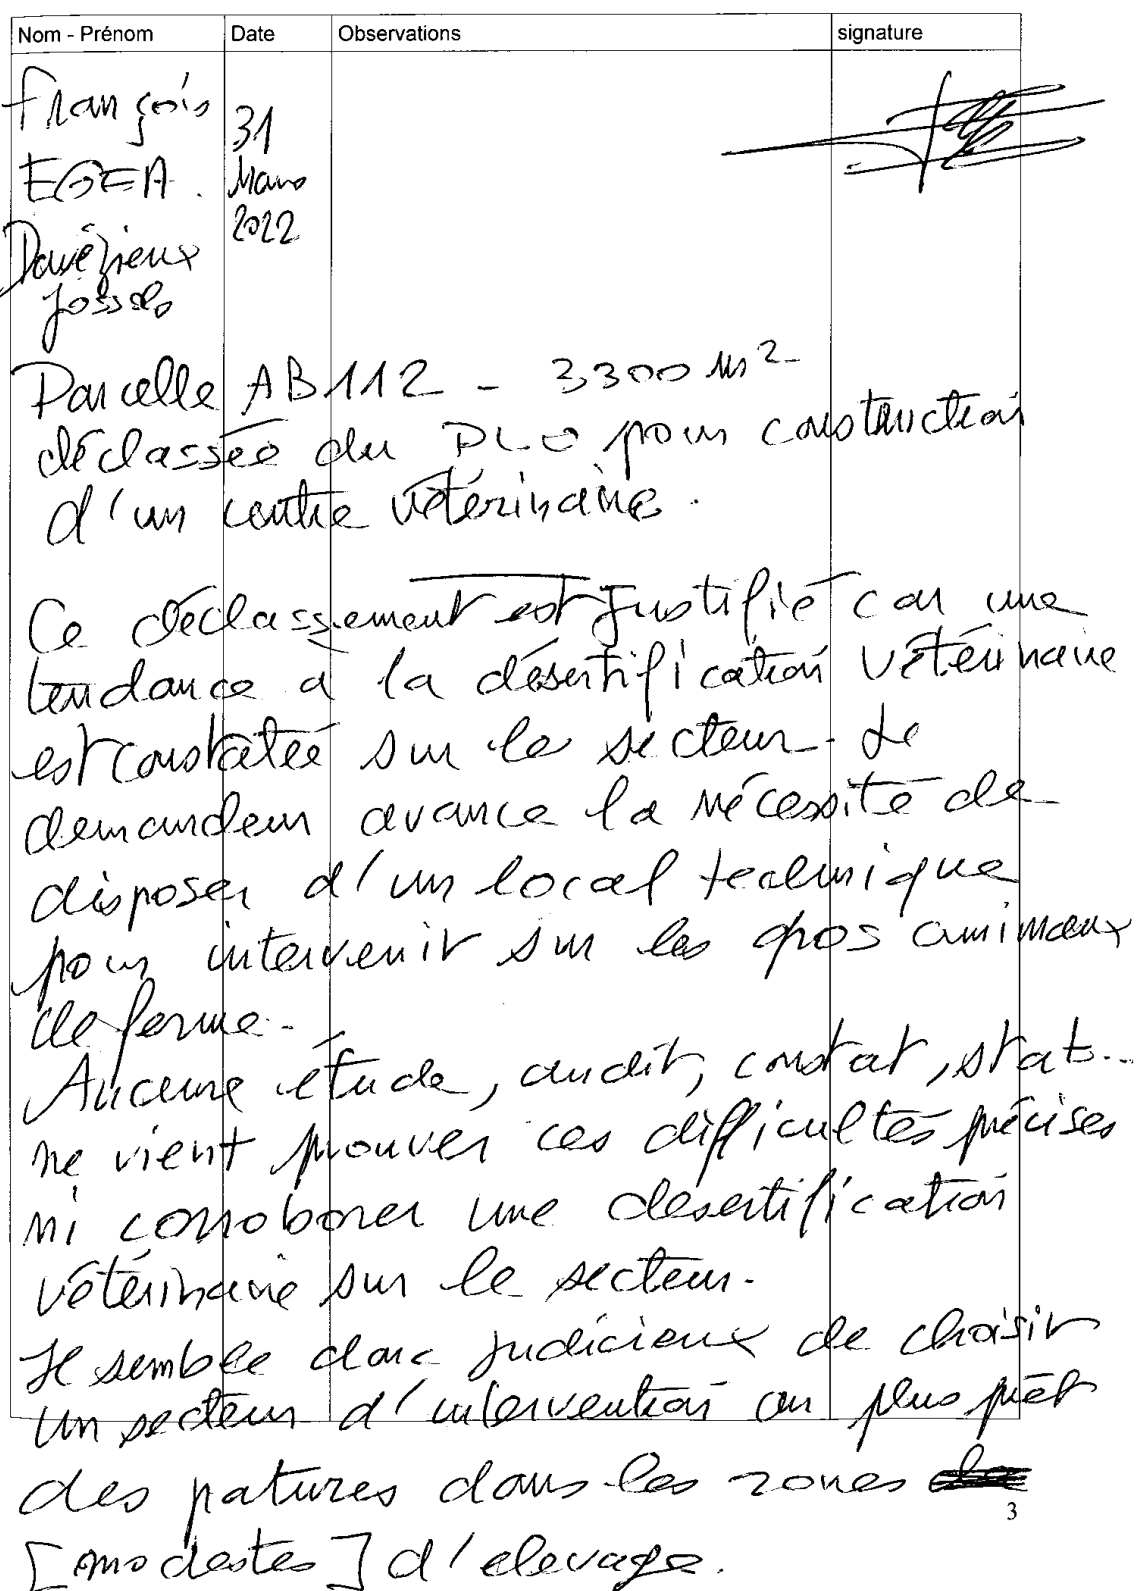 Nom - Prénom Date Observations signature
François
EGEA.
31
Mars
2022
Davézieux
Parcelle AB112 - 3300 m²
déclassée du PLU pour construction
d'un centre vétérinaire.
Ce déclassement est justifié car une
tendance a la désertification vétérinaire
est constatée sur le secteur. Le
demandeur avance la nécessité de
disposer d'un local technique
pour intervenir sur les gros animaux
de ferme.
Aucune étude, audit, constat, stats...
ne vient prouver ces difficultés précises
ni corroborer une désertification
vétérinaire sur le secteur.
Il semble donc judicieux de choisir
un secteur d'intervention au plus prêt
des patures dans les zones
3
[modestes] d'elevage.